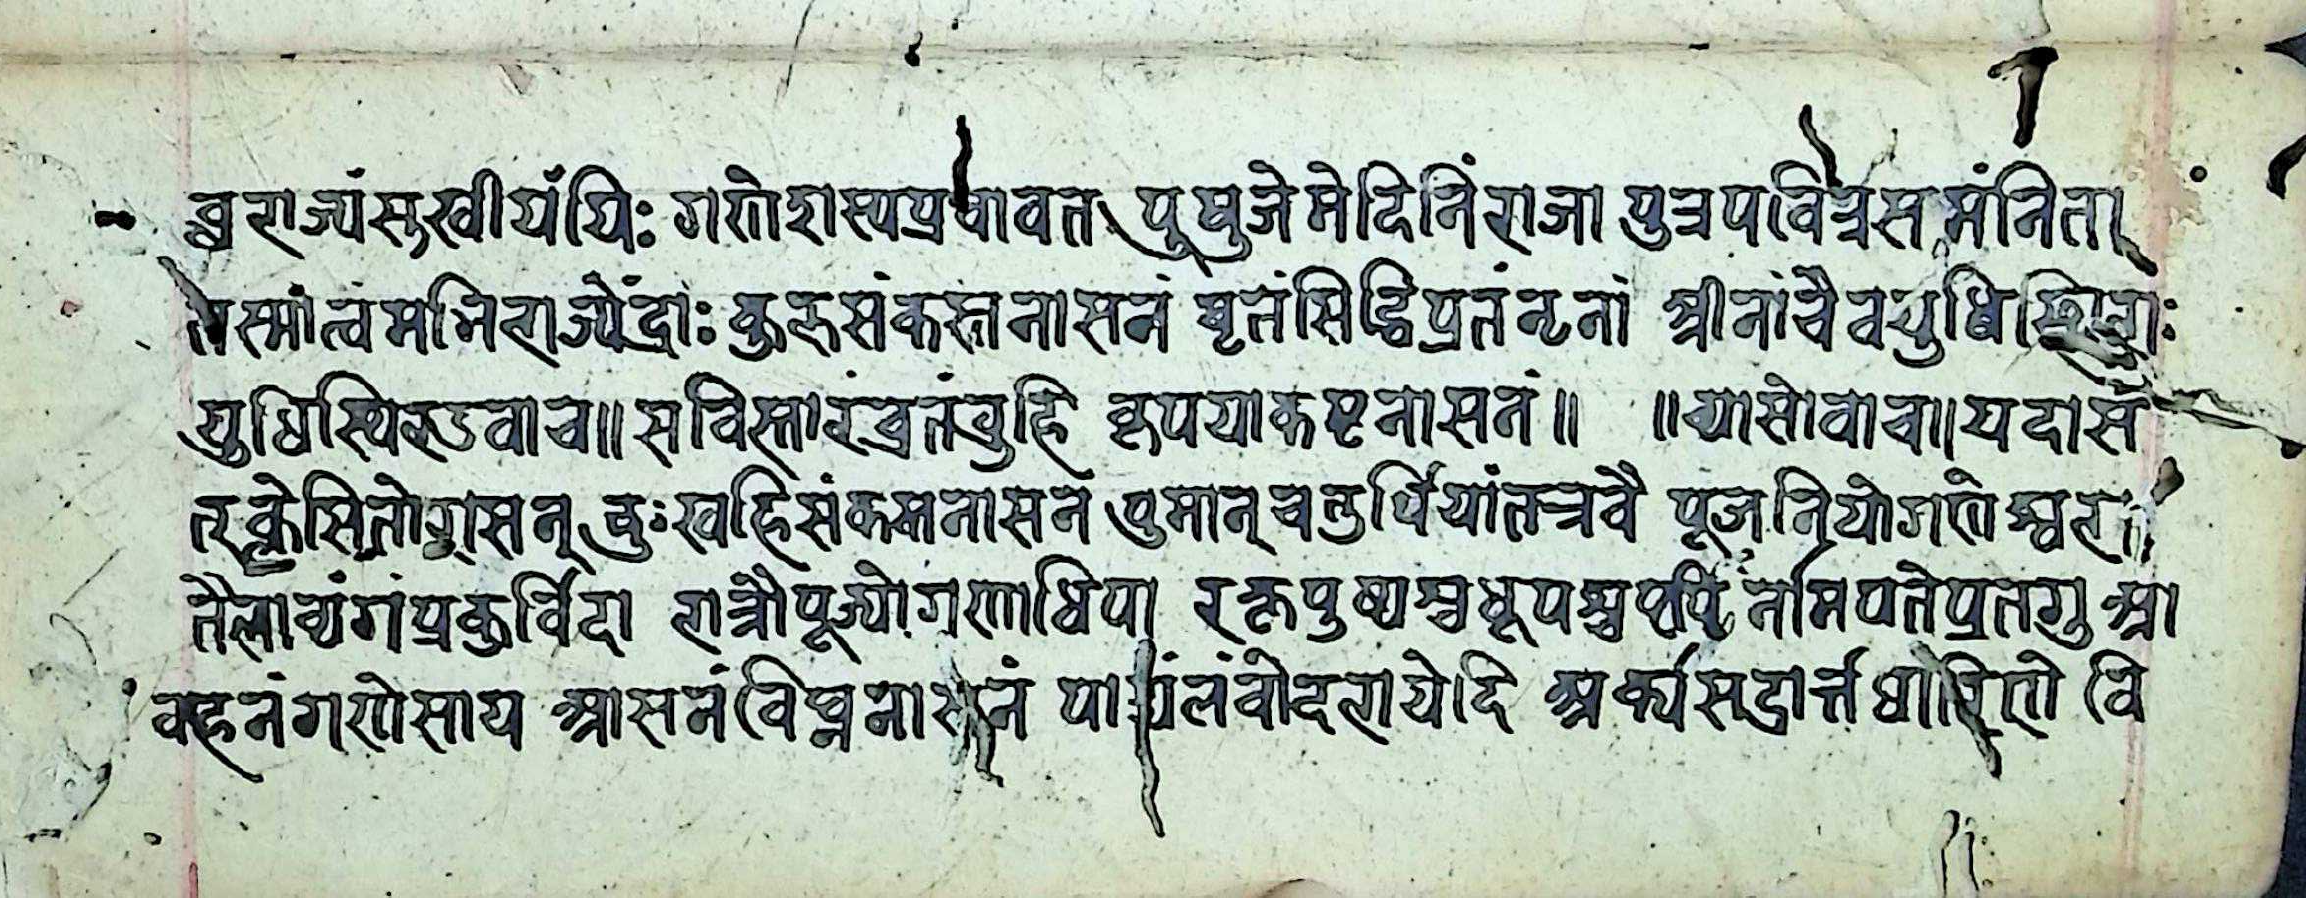 व्रराज्यंसुखीर्यंयिः गणेशस्यप्रभावत पुभुजेमेदिनिंराजा पुत्रपवित्रसमंनिता
तस्मांत्वमभिराज्येंद्राः कुरुसंकस्तनासनं भृतंसिद्धिप्रतंन्टनां स्त्रीनांचैवयुधिस्थिराः
युधिस्थिरउवाच॥ सविस्तारंव्रतंव्रुहि कृपयाकष्टनासनं॥ ॥व्यासोवाच॥यदास
त्क्लेसितो सन् दुःखहिसंकमनासनं पुमान् चतुर्थियांतत्रवै पूजनियोगणेश्वरा
तैलाभ्यंगंप्रकुर्विदा रात्रौपूज्योगणाधिपा रक्तपुष्पश्चधूपश्च प्रतगु आ
वहनंगणेसाय आसनंविघ्ननासनं पाद्यंलंबोदरायेदि अर्क्यसद्रार्त्तधारिणे वि